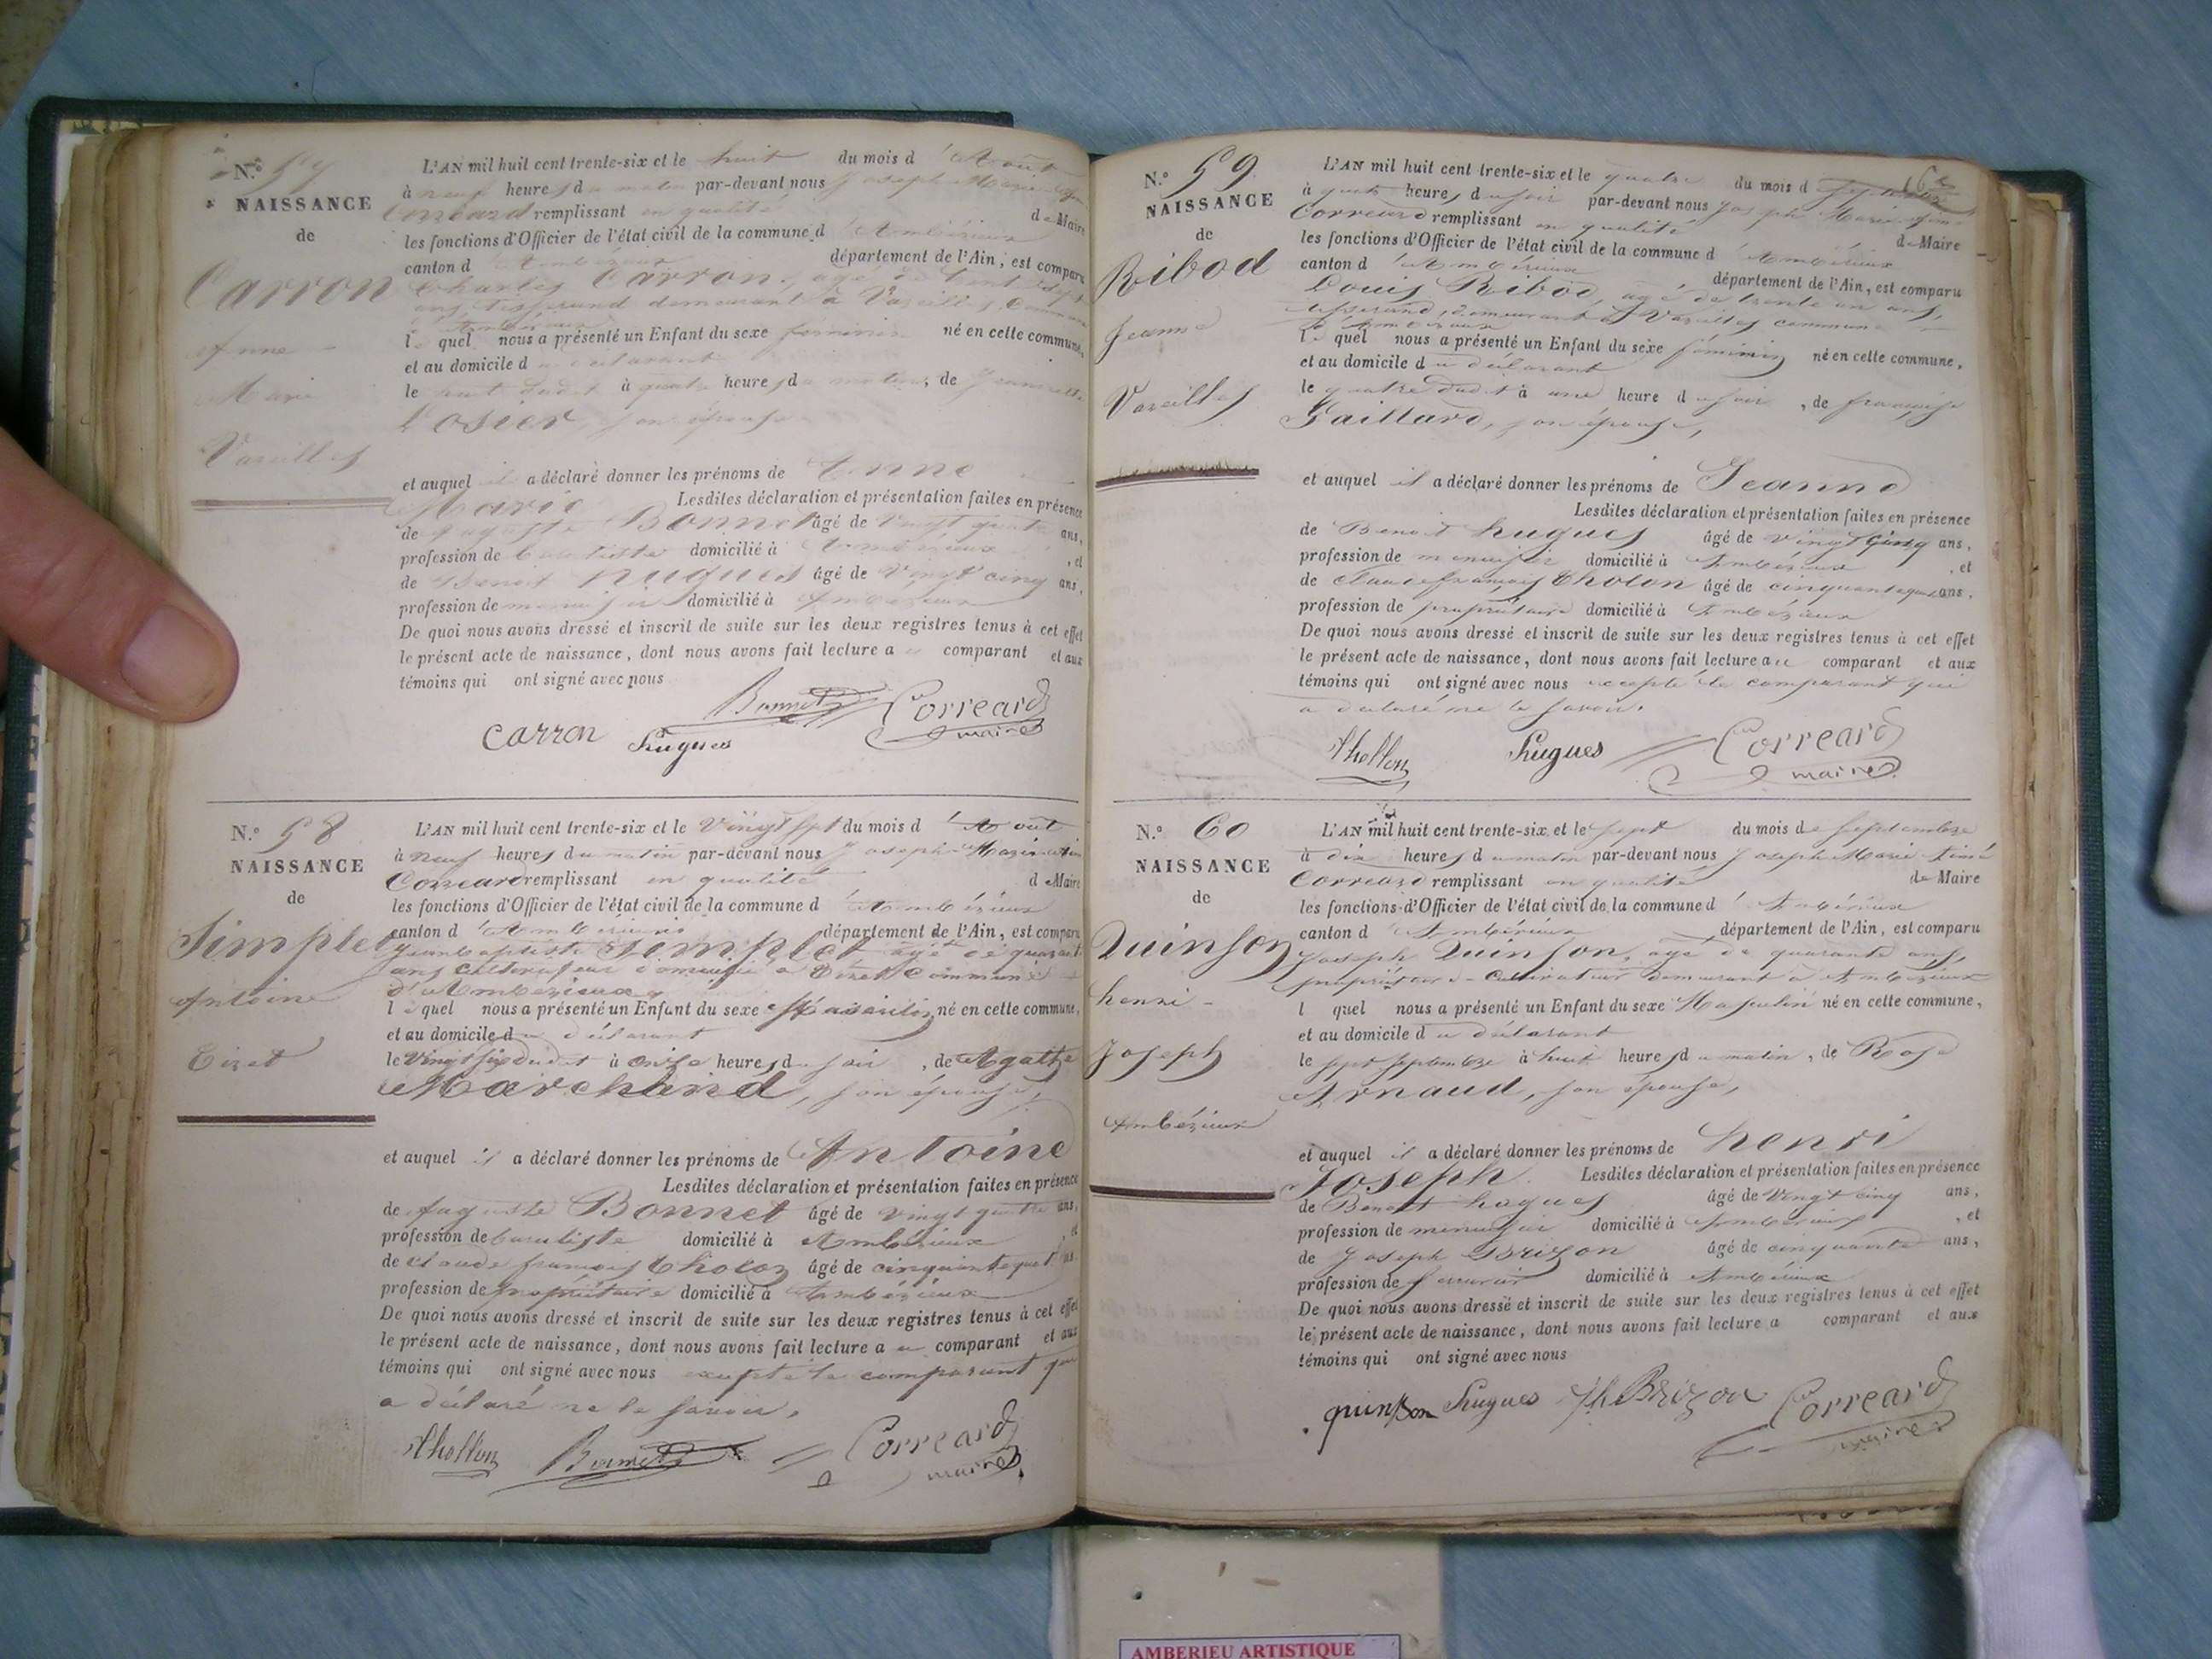 N.° 57
NAISSANCE
de
Carron
Anne
Marie
Vareilles
L'AN mil huit cent trente-six et le huit du mois d'Août
à neuf heures du matin par-devant nous Joseph Marie
Correard remplissant en qualité de Maire
les fonctions d'Officier de l'état civil de la commune d'Ambérieux
canton d'Ambérieux département de l'Ain, est comparu
Charles Carron, âgé de trente sept
ans, Tisserand demeurant à Vareilles, Commune
d'Ambérieux
lequel nous a présenté un Enfant du sexe féminin né en cette commune,
et au domicile du déclarant
le huit dudit à quatre heures du matin, de
Losier, son épouse
et auquel il a déclaré donner les prénoms de Anne
Marie Lesdites déclaration et présentation faites en présence
de Auguste Bonnet âgé de vingt quatre ans,
profession de domicilié à Ambérieux, et
de Benoit hugues âgé de Vingt cinq ans,
profession de menuisier domicilié à Ambérieux
De quoi nous avons dressé et inscrit de suite sur les deux registres tenus à cet effet
le présent acte de naissance, dont nous avons fait lecture au comparant et aux
témoins qui ont signé avec nous
Carron hugues Bonnet Correard
maire
N.° 58
NAISSANCE
de
Simplet
Antoine
Tiret
L'AN mil huit cent trente-six et le Vingt sept du mois d'Août
à neuf heures du matin par-devant nous Joseph Marie
Correard remplissant en qualité de Maire
les fonctions d'Officier de l'état civil de la commune d'Ambérieux
canton d'Ambérieux département de l'Ain, est comparu
Jean baptiste Simplet âgé de quarante
ans Cultivateur domicilié à Tiret Commune
d'Ambérieux
lequel nous a présenté un Enfant du sexe Masculin né en cette commune,
et au domicile du déclarant
le Vingt six dudit à onze heures du soir, de Agathe
Marchand, son épouse,
et auquel il a déclaré donner les prénoms de Antoine
Lesdites déclaration et présentation faites en présence
de Auguste Bonnet âgé de vingt quatre ans,
profession de domicilié à Ambérieux, et
de Claude françois tholon âgé de cinquante quatre ans
profession de propriétaire domicilié à Ambérieux
De quoi nous avons dressé et inscrit de suite sur les deux registres tenus à cet effet
le présent acte de naissance, dont nous avons fait lecture au comparant et aux
témoins qui ont signé avec nous excepté le comparant qui
a déclaré ne le savoir.
thollon Bonnet Correard
maire
N.° 59
NAISSANCE
de
Ribod
Jeanne
Vareilles
L'AN mil huit cent trente-six et le quatre du mois d Septembre
à quatre heures du soir par-devant nous Joseph Marie Aimé
Correard remplissant en qualité de Maire
les fonctions d'Officier de l'état civil de la commune d'Ambérieux
canton d'Ambérieux département de l'Ain, est comparu
Louis Ribod, âgé de trente un ans,
tisserand, demeurant à Vareilles commune
d'Ambérieux
lequel nous a présenté un Enfant du sexe féminin né en cette commune,
et au domicile du déclarant
le quatre dudit à une heure du soir, de françoise
Gaillard, son épouse,
et auquel il a déclaré donner les prénoms de Jeanne
Lesdites déclaration et présentation faites en présence
de Benoit hugues âgé de vingt cinq ans,
profession de menuisier domicilié à Ambérieux, et
de Claude françois tholon âgé de cinquante quatre ans,
profession de propriétaire domicilié à Ambérieux
De quoi nous avons dressé et inscrit de suite sur les deux registres tenus à cet effet
le présent acte de naissance, dont nous avons fait lecture au comparant et aux
témoins qui ont signé avec nous excepté le comparant qui
a déclaré ne le savoir.
thollon hugues Correard
maire
N.° 60
NAISSANCE
de
Quinson
henri
Joseph
Ambérieux
L'AN mil huit cent trente-six et le sept du mois de Septembre
à dix heures du matin par-devant nous Joseph Marie Aimé
Correard remplissant en qualité de Maire
les fonctions d'Officier de l'état civil de la commune d'Ambérieux
canton d'Ambérieux département de l'Ain, est comparu
Joseph Quinson, âgé de quarante ans,
propriétaire-Cultivateur demeurant à Ambérieux
l quel nous a présenté un Enfant du sexe Masculin né en cette commune,
et au domicile du déclarant
le sept Septembre à huit heures du matin, de Rose
Arnaud, son épouse,
et auquel il a déclaré donner les prénoms de henri
Joseph. Lesdites déclaration et présentation faites en présence
de Benoit hugues âgé de Vingt cinq ans,
profession de menuisier domicilié à Ambérieux, et
de Joseph Brizon âgé de cinquante ans,
profession de serrurier domicilié à Ambérieux
De quoi nous avons dressé et inscrit de suite sur les deux registres tenus à cet effet
le présent acte de naissance, dont nous avons fait lecture a comparant et aux
témoins qui ont signé avec nous
quinson hugues Jh Brizon Correard
maire
AMBERIEU ARTISTIQUE